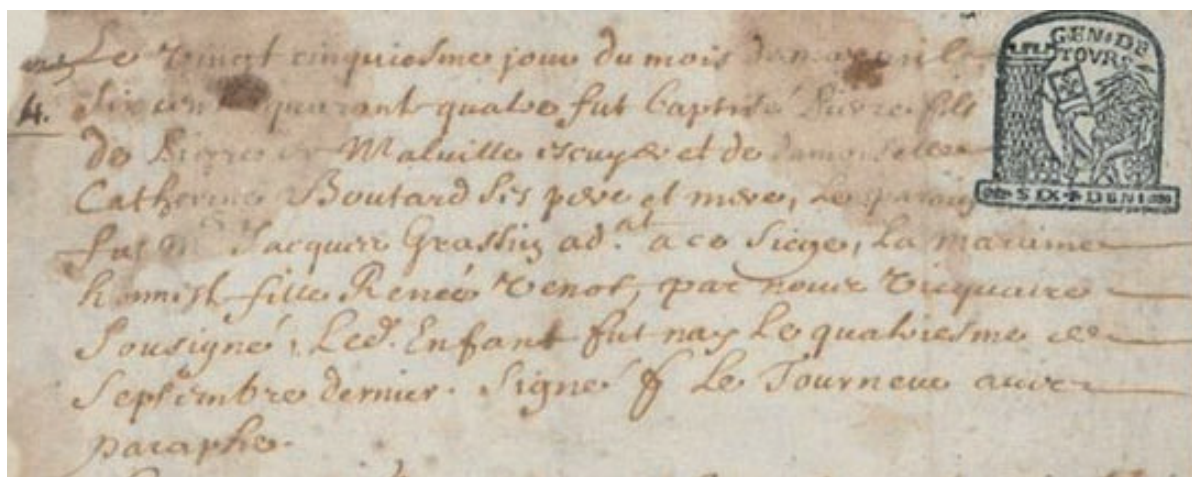 Le vingt cinquiesme jour du mois de mars mil
4. six cent quarant quatre fut baptisé Pierre fils
de Pierre de Malville escuyer et de damoiselle
Catherine Boutard ses pere et mere, Le parain
fut Mr Jacques Grassin ad.at a ce siege, La marinne
honneste fille Renée Venot, par nous vicquaire
sousigné, Led. Enfant fut nay le quatriesme de
septembre dernier. Signé f Le Tourneux avec
paraphe.
GEN·DE
TOURS
SIX DENI